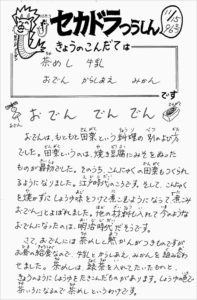 セカドラつうしん
11/15
きょうのこんだては
茶めし 牛乳
おでん からしあえ みかん
です
おでん でん でん
おでんは、もともと田楽という料理の別のよび方
でした。田楽というのは、焼き豆腐にみそをぬった
ものが最初でした。そのうち、こんにゃくの田楽もつくられ
るようになりました。江戸時代のころです。そして、こんにゃく
を焼かずにしょうゆ味をつけて煮こむようになって「煮こみ
おでん」とよばれました。他の材料も入れて今のような
おでんになったのは、明治時代だそうです。
さて、おでんには茶めしと燗かんがつきものですが
お昼の給食なので、牛乳とからしあえ、みかんを組み合わ
せました。茶めしは、緑茶を入れてたいたものと、
しょうゆのようにしょうゆでたきこんだものがあります。しょうゆで
茶いろになるので茶めしというわけです。